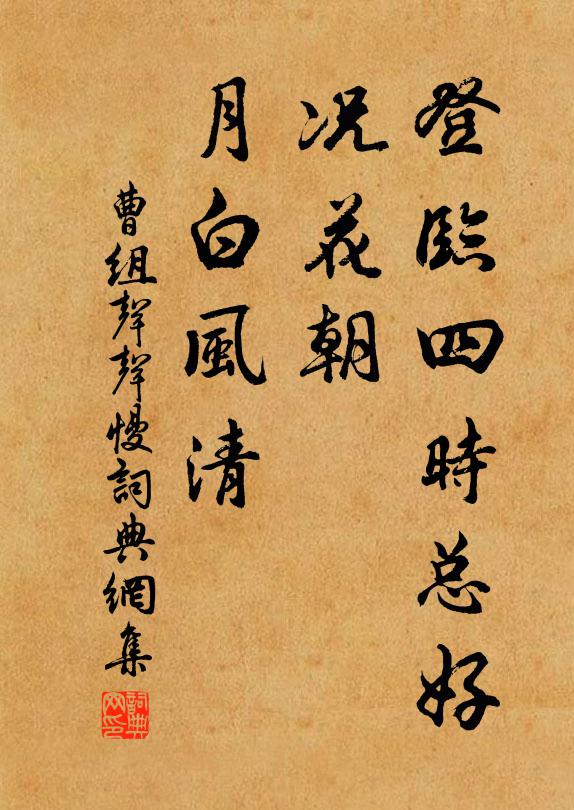 登臨四時总好
况花朝
月白風清
曹组聲聲慢詞典網集
詞典
网印